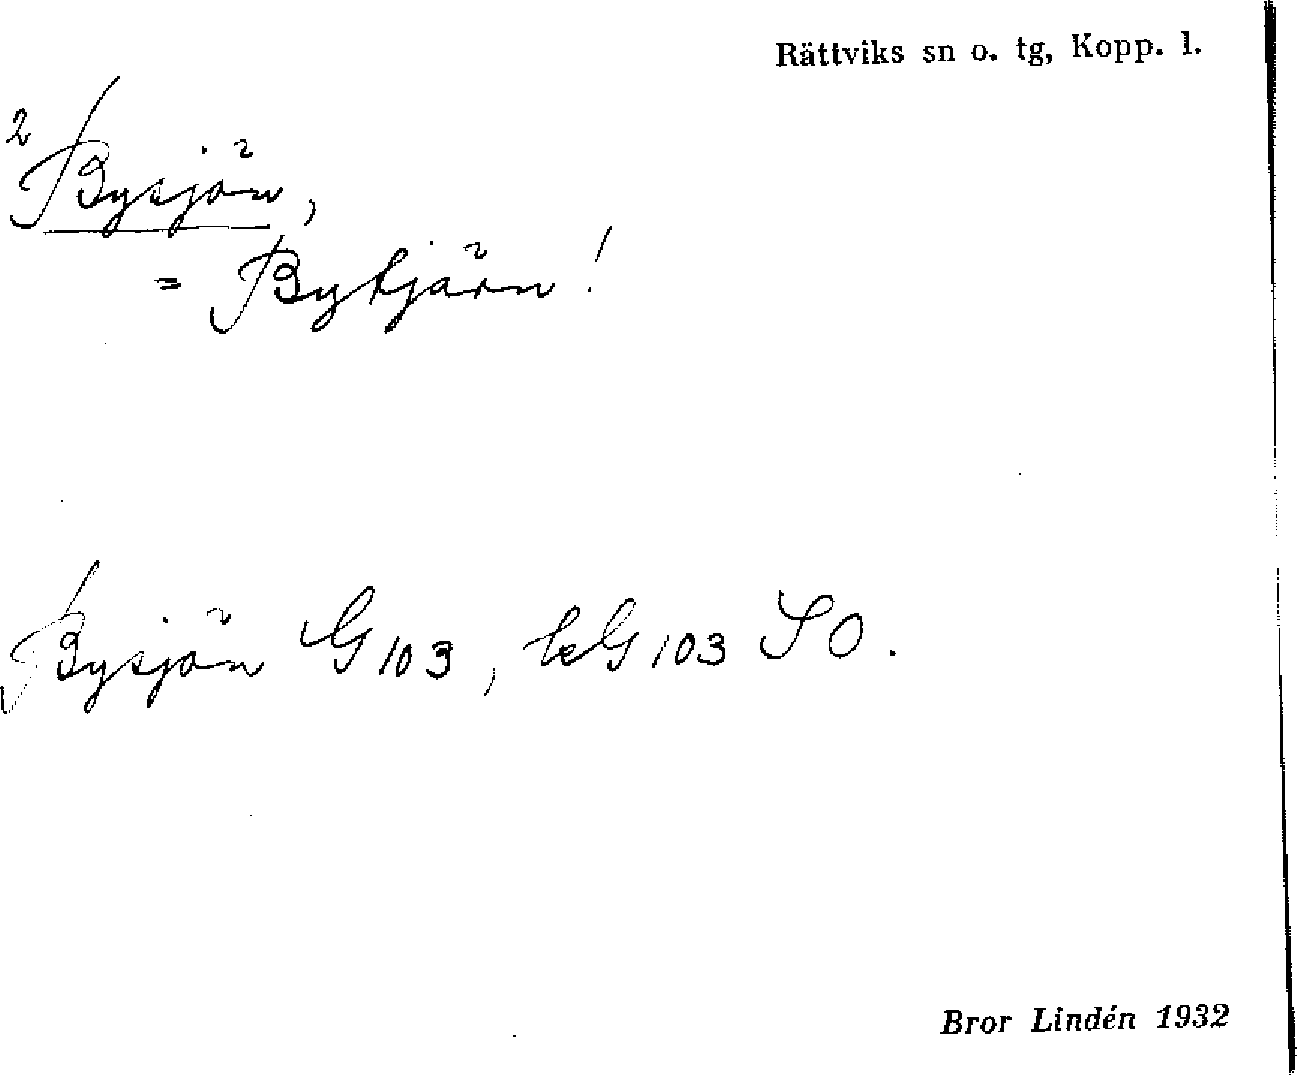 Rättviks sn o. tg, Kopp. l.
2 Bysjön,
= Bytjärn!
Bysjön G 103, leG 103 SO.
Bror Lindén 1932